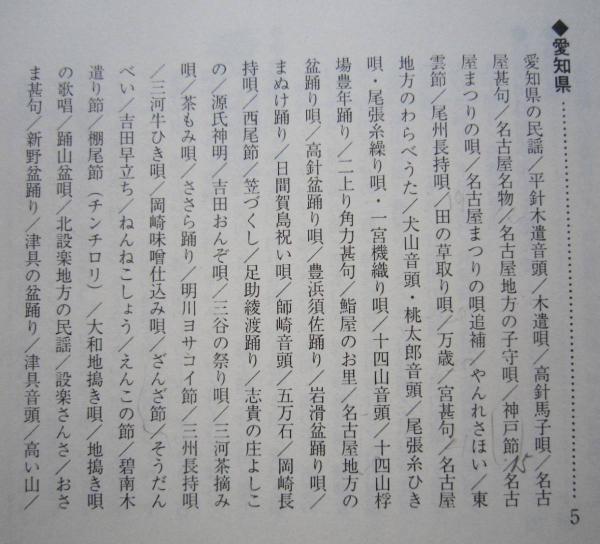 ◆愛知県……………………………………5
愛知県の民謡／平針木遣音頭／木遣唄／高針馬子唄／名古
屋甚句／名古屋名物／名古屋地方の子守唄／神戸節／名古
屋まつりの唄／名古屋まつりの唄追補／やんれさほい／東
雲節／尾州長持唄／田の草取り唄／万歳／宮甚句／名古屋
地方のわらべうた／犬山音頭・桃太郎音頭／尾張糸ひき
唄・尾張糸繰り唄・一宮機織り唄／十四山音頭／十四山桴
場豊年踊り／二上り角力甚句／鮨屋のお里／名古屋地方の
盆踊り唄／高針盆踊り唄／豊浜須佐踊り／岩滑盆踊り唄／
まぬけ踊り／日間賀島祝い唄／師崎音頭／五万石／岡崎長
持唄／西尾節／笠づくし／足助綾渡踊り／志貴の庄よしこ
の／源氏神明／吉田おんぞ唄／三谷の祭り唄／三河茶摘み
唄／茶もみ唄／ささら踊り／明川ヨサコイ節／三州長持唄
／三河牛ひき唄／岡崎味噌仕込み唄／ざんざ節／そうだん
べい／吉田早立ち／ねんねこしょう／えんこの節／碧南木
遣り節／棚尾節（チンチロリ）／大和地搗き唄／地搗き唄
の歌唱／踊山盆唄／北設楽地方の民謡／設楽さんさ／おさ
ま甚句／新野盆踊り／津具の盆踊り／津具音頭／高い山／